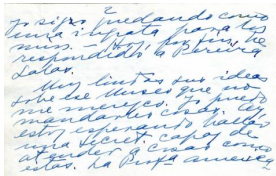 2
yo sigo quedando como
una ingrata para todos
mis. — por fin, he
respondido a Pereira
Salas.
Muy lindas sus ideas
sobre ese Museo que no
me merezco. Yo puedo
mandarles cosas,
estoy esperando hallar
una Secret. capaz de
atender a cosas como
estas. La Profa